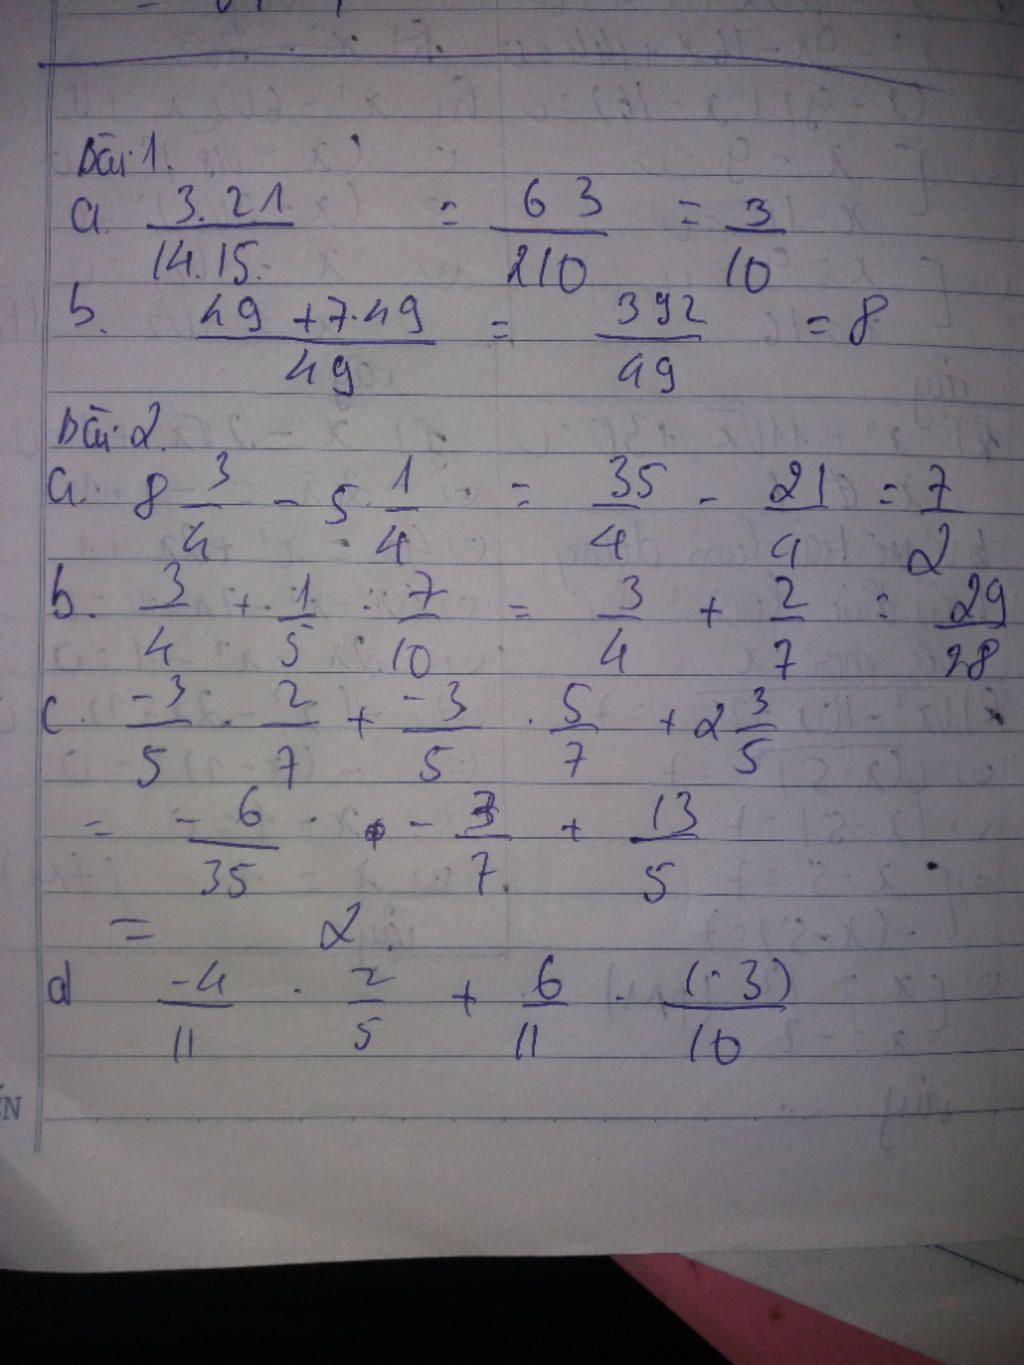 Bài 1.
a. 3.21/14.15. = 63/210 = 3/10
b. 49 + 7.49/49 = 392/49 = 8
Bài 2.
a. 8 3/4 - 5 1/4 = 35/4 - 21/4 = 7/2
b. 3/4 + 1/5 : 7/10 = 3/4 + 2/7 = 29/28
c. -3/5 . 2/7 + -3/5 . 5/7 + 2 3/5
= -6/35 - 3/7 + 13/5
= 2.
d -4/11 . 2/5 + 6/11 . (-3)/10